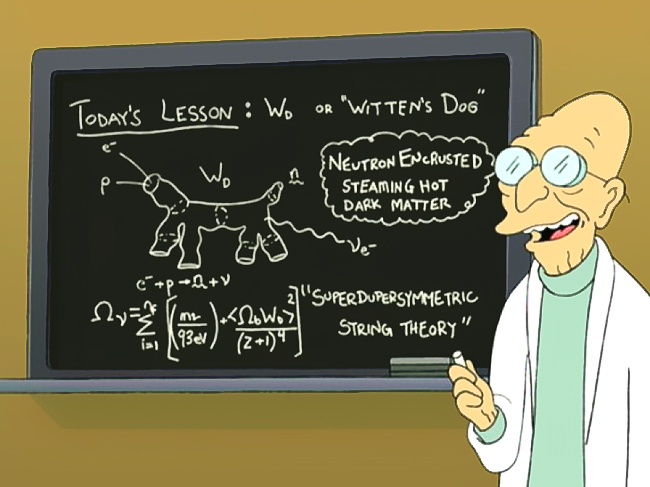 TODAY'S LESSON: W_D OR "WITTEN'S DOG"
e⁻
P
W_D
Ω
ν_e⁻
NEUTRON ENCRUSTED
STEAMING HOT
DARK MATTER
e⁻+p→Ω+ν
Ω_ν=∑_{i=1} [(/93eV)+<Ω_b W_D>²/(z+1)⁴]
"SUPERDUPERSYMMETRIC
STRING THEORY"